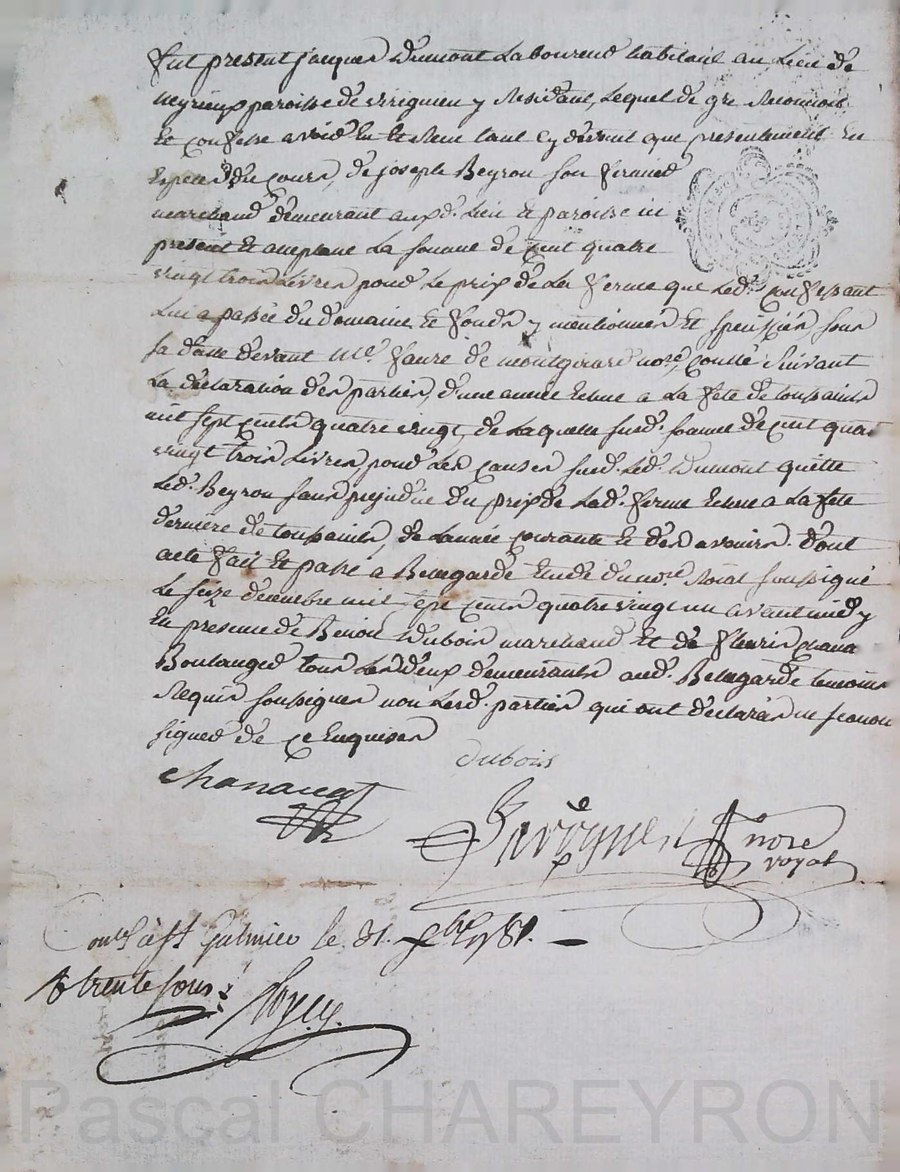 fut present jacques Dumont Laboureur habitant au Lieu de
meyrieux paroisse de virignieu y Residant, Lequel de gré Reconnoit
Et confesse avoir Eu Et Receu tant cy devant que presentement En
Especes du cours, de joseph Beyron son fermier
marchand demeurant auxd. Lieu Et paroisse ici
présent Et acceptant La somme de cent quatre
vingt trois Livres pour Le prix de La ferme que Led. confessant
Lui a passée du domaine Et fonds y mentionnés Et spécifiés sous
sa datte devant Me. faure de montgirard nore, comme suivant
La déclaration des parties, d'une année Echue a La fete de toussaints
mil sept cents quatre vingt, de Laquelle susd. somme de cent quatre
vingt trois Livres, pour Les causes susd. Led. Dumont quitte
Led. Beyron sans prejudice du prix de Lad. ferme Echue a La fete
derniere de toussaints, de Lannée courante Et des avenirs. dont
acte fait Et passé a Bellegarde Etude du nore. Roial soussigné
Le seize décembre mil sept cents quatre vingt un avant midy
En presence de Benoit Dubois marchand Et de fleuris
Boulanger tous Les deux demeurants aud. Bellegarde temoins
Requis soussignés non Lesd. parties qui ont déclarés ne scavoir
signer de ce Enquises
Dubois
chanavat
nore
royal
Conlé à St Galmier le 31. xbre 1781.
R trente sous
Pascal CHAREYRON